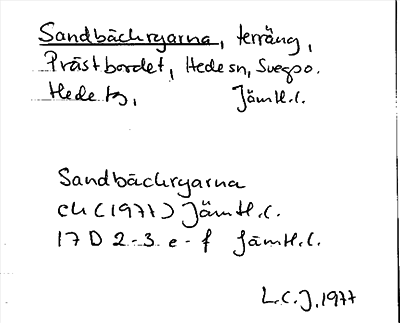 Sandbäckryarna, terräng,
Prästbordet, Hede sn, Svegs o.
Hede tg, Jämtl.l.
Sandbäckryarna
ek (1971) Jämtl.l.
17 D 2-3 e-f Jämtl.l.
L.C.J. 1977